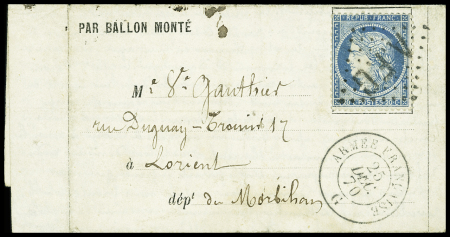 PAR BALLON MONTÉ
REPUB. FRANC.
Mr. Ve. Gauthier
rue Duguay-Trouin 17
à Lorient
dépt du Morbihan
ARMÉE FRANÇAISE
25
DEC.
70
G